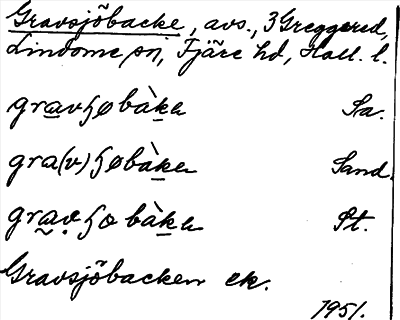 Gravsjöbacke, avs., 3 Greggered,
Lindome sn, Fjäre hd, Hall. l.
gravɧøbàkɐ Sa.
gra(v)ɧøbàkɐ Sand.
gravɧøbàkɐ St.
Gravsjöbacken ek.
1951.